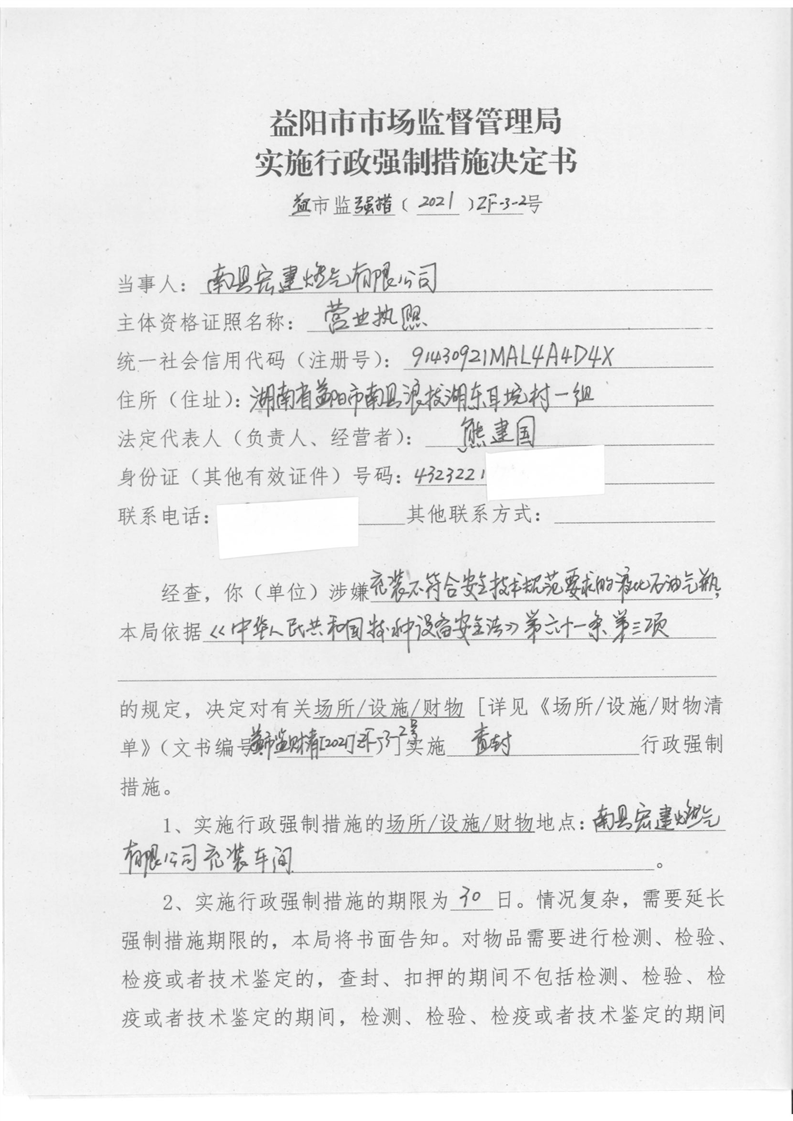 益阳市市场监督管理局
实施行政强制措施决定书
益市监强措（2021）ZF-3-2号
当事人：南县宏建燃气有限公司
主体资格证照名称：营业执照
统一社会信用代码（注册号）：91430921MAL4A4D4X
住所（住址）：湖南省益阳市南县浪拔湖东耳垸村一组
法定代表人（负责人、经营者）：熊建国
身份证（其他有效证件）号码：4323221
联系电话： 其他联系方式：
经查，你（单位）涉嫌充装不符合安全技术规范要求的液化石油气瓶，
本局依据《中华人民共和国特种设备安全法》第六十一条第三项
的规定，决定对有关场所/设施/财物［详见《场所/设施/财物清
单》（文书编号益市监财清[2021]ZF-3-2号］实施 查封 行政强制
措施。
1、实施行政强制措施的场所/设施/财物地点：南县宏建燃气
有限公司充装车间。
2、实施行政强制措施的期限为30日。情况复杂，需要延长
强制措施期限的，本局将书面告知。对物品需要进行检测、检验、
检疫或者技术鉴定的，查封、扣押的期间不包括检测、检验、检
疫或者技术鉴定的期间，检测、检验、检疫或者技术鉴定的期间